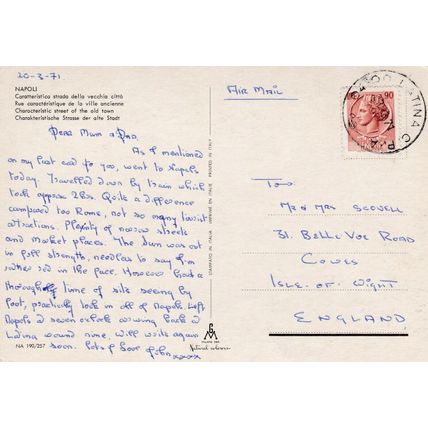 20-3-71
NAPOLI
Caratteristica strada della vecchia città
Rue caractéristique de la ville ancienne
Characteristic street of the old town
Charakteristische Strasse der alte Stadt
Dear Mum & Dad,
As I mentioned
on my last card to you, went to Naples
today. Travelled down by train which
took approx 2hrs. Quite a difference
compared too Rome, not so many tourist
attractions. Plenty of narrow streets
and market places. The sun was out
in full strength, needless to say I'm
rather red in the face. However had a
thoroughly time of site seeing by
foot, practically took in all of Naples. Left
Napoli a seven o'clock arriving back a
Latina round nine, will write again
soon. Lots of love John xxxx
NA 190/257
STAMPATO IN ITALIA IMPRIME EN ITALIE PRINTED IN ITALY
Natural colours
AIR MAIL
90
LATINA
To:-
MR & MRS SCOVELL
31 BELLE-VUE ROAD
COWES
ISLE-OF-WIGHT
ENGLAND